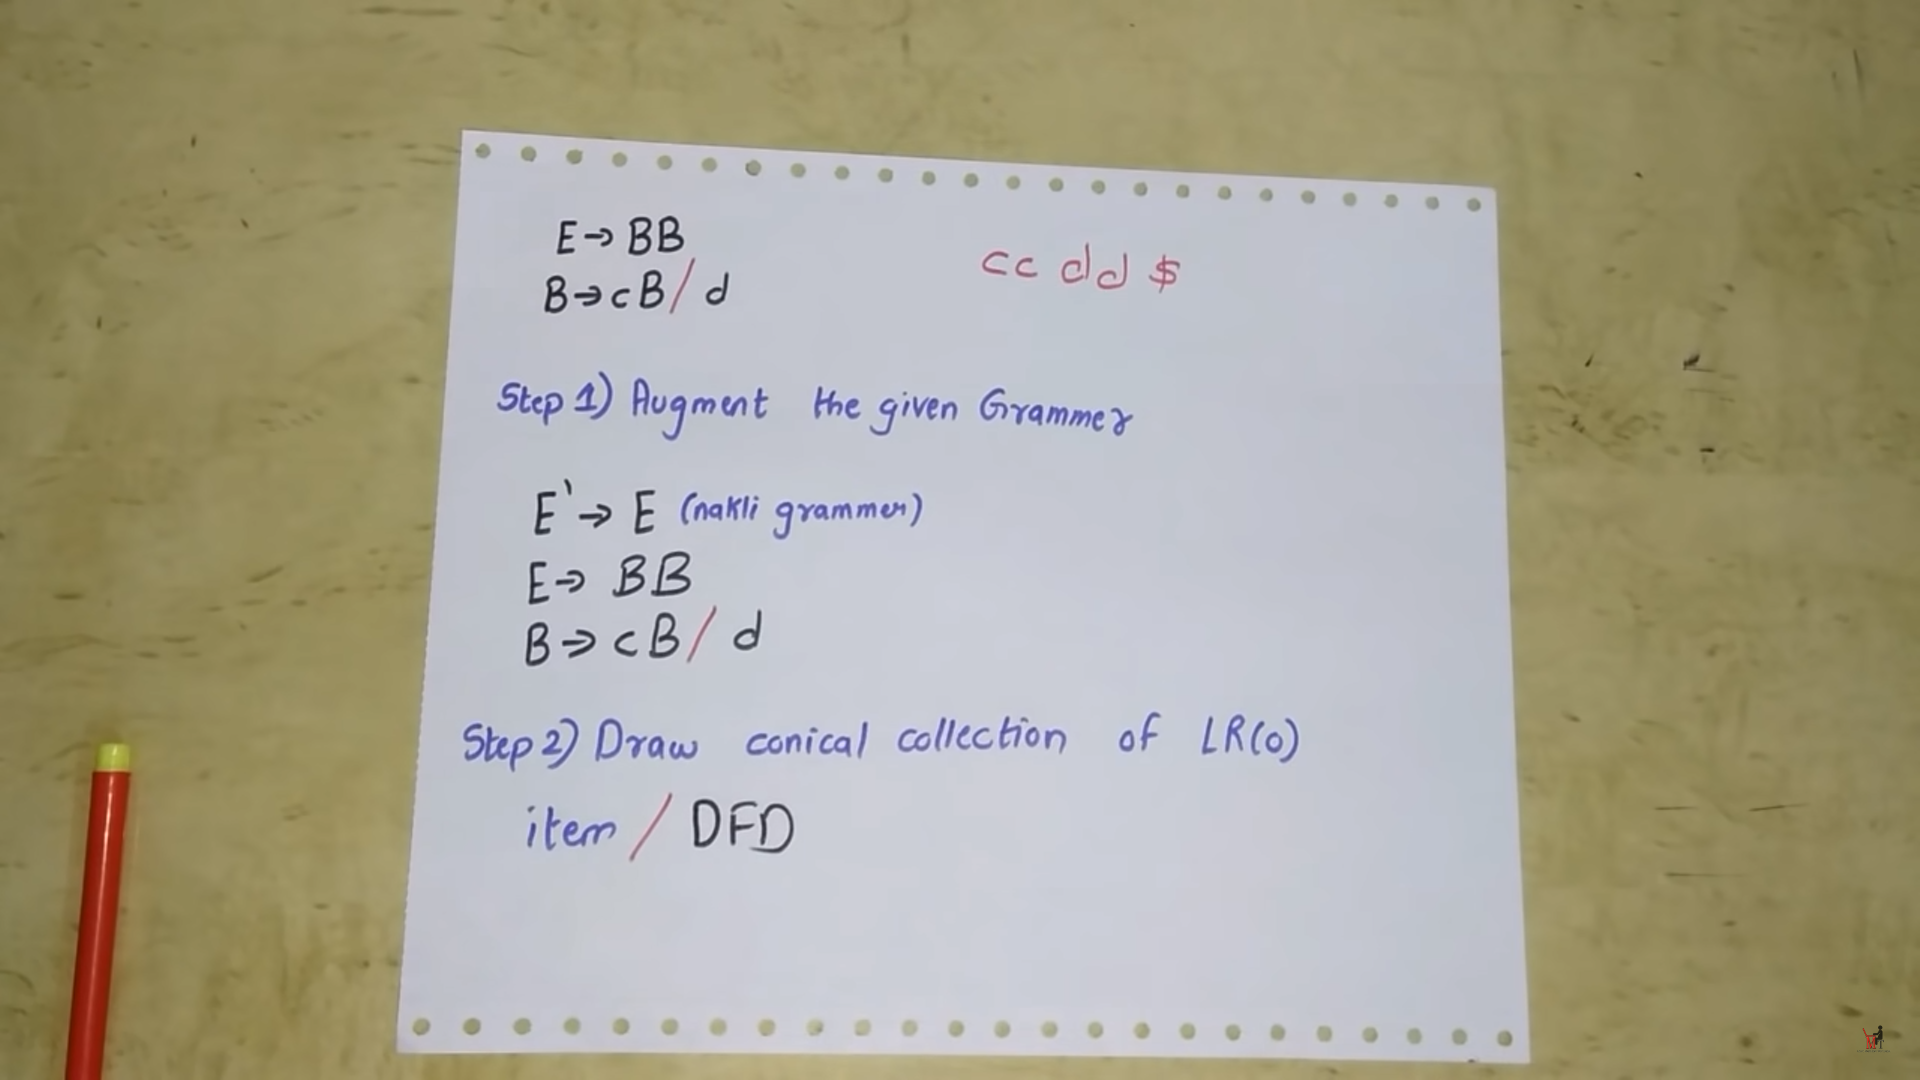 E→ BB
B→cB/d
cc dd $
Step 1) Augment the given Grammer
E'→ E (nakli grammer)
E→ BB
B→ cB/ d
Step 2) Draw conical collection of LR(0)
item / DFD